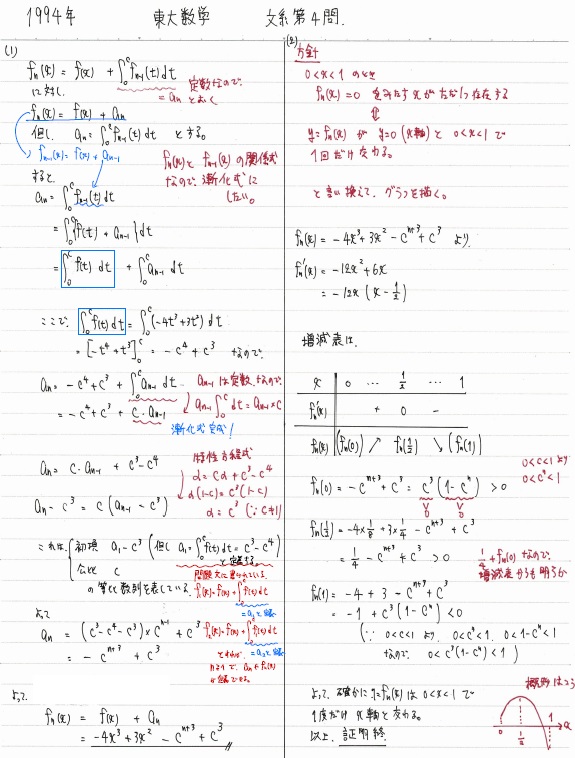 1994年 東大数学 文系第4問.
(1)
fₙ(x) = f(x) + ∫₀ᶜ fₙ₋₁(t) dt
定数なので.
= aₙ とおく
に対し.
fₙ(x) = f(x) + aₙ
但し aₙ = ∫₀ᶜ fₙ₋₁(t) dt とする。
fₙ₋₁(x) = f(x) + aₙ₋₁
fₙ(x)と fₙ₋₁(x) の関係式
なので. 漸化式に
したい。
すると
aₙ = ∫₀ᶜ fₙ₋₁(t) dt
= ∫₀ᶜ {f(t) + aₙ₋₁} dt
= ∫₀ᶜ f(t) dt + ∫₀ᶜ aₙ₋₁ dt
ここで. ∫₀ᶜ f(t) dt = ∫₀ᶜ (-4t³+3t²) dt
= [-t⁴+t³]₀ᶜ = -c⁴+c³ なので.
aₙ = -c⁴+c³ + ∫₀ᶜ aₙ₋₁ dt
aₙ₋₁ は定数. なので.
= -c⁴+c³ + c・aₙ₋₁
aₙ₋₁ ∫₀ᶜ dt = aₙ₋₁ × c
漸化式完成!
aₙ = c・aₙ₋₁ + c³-c⁴
特性方程式
α = cα + c³-c⁴
α(1-c) = c³(1-c)
α = c³ (∵ c≠1)
aₙ - c³ = c (aₙ₋₁ - c³)
これは. 初項 a₁-c³ (但し a₁ = ∫₀ᶜ f(t) dt = c³-c⁴)
公比 c
と定義する。
の等比数列を表している。
問題文に書かれている.
f₁(x) = f(x) + ∫₀ᶜ f(t) dt
= a₁と定義
よって
aₙ = (c³-c⁴-c³) × cⁿ⁻¹ + c³
= -cⁿ⁺³ + c³
よって.
fₙ(x) = f(x) + aₙ
= -4x³+3x² - cⁿ⁺³ + c³
(2)
方針
0<x<1 のとき
fₙ(x) = 0 をみたす x がただ1つ存在する
⇕
y=fₙ(x) が y=0 (x軸) と 0<x<1 で
1回だけ交わる。
と言い換えて. グラフを描く。
fₙ(x) = -4x³+3x² - cⁿ⁺³ + c³ より
fₙ'(x) = -12x²+6x
= -12x (x - 1/2)
増減表は.
x | 0 … 1/2 … 1
fₙ'(x) | + 0 -
fₙ(x) | (fₙ(0)) ↗ fₙ(1/2) ↘ (fₙ(1))
0<c<1 より
0<cⁿ<1
fₙ(0) = -cⁿ⁺³ + c³ = c³(1-cⁿ) > 0
fₙ(1/2) = -4×1/8 + 3×1/4 - cⁿ⁺³ + c³
= 1/4 - cⁿ⁺³ + c³ > 0
1/4 + fₙ(0) なので.
増減表からも明らか
fₙ(1) = -4 + 3 - cⁿ⁺³ + c³
= -1 + c³(1-cⁿ) < 0
(∵ 0<c<1 より. 0<cⁿ<1, 0<1-cⁿ<1
なので. 0 < c³(1-cⁿ) < 1)
よって. 確かに y=fₙ(x) は 0<x<1 で
1度だけ x軸と交わる。
以上. 証明終
概形はこう
0 1/2 1 x